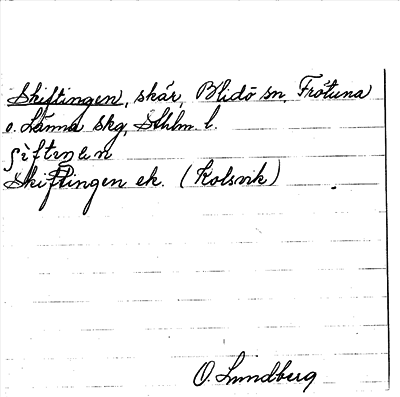 Skiftingen, skär, Blidö sn, Frötuna
o. Länna skg, Sthlm. l.
Skiftingen ek. (Kolsvik)
O. Lundberg